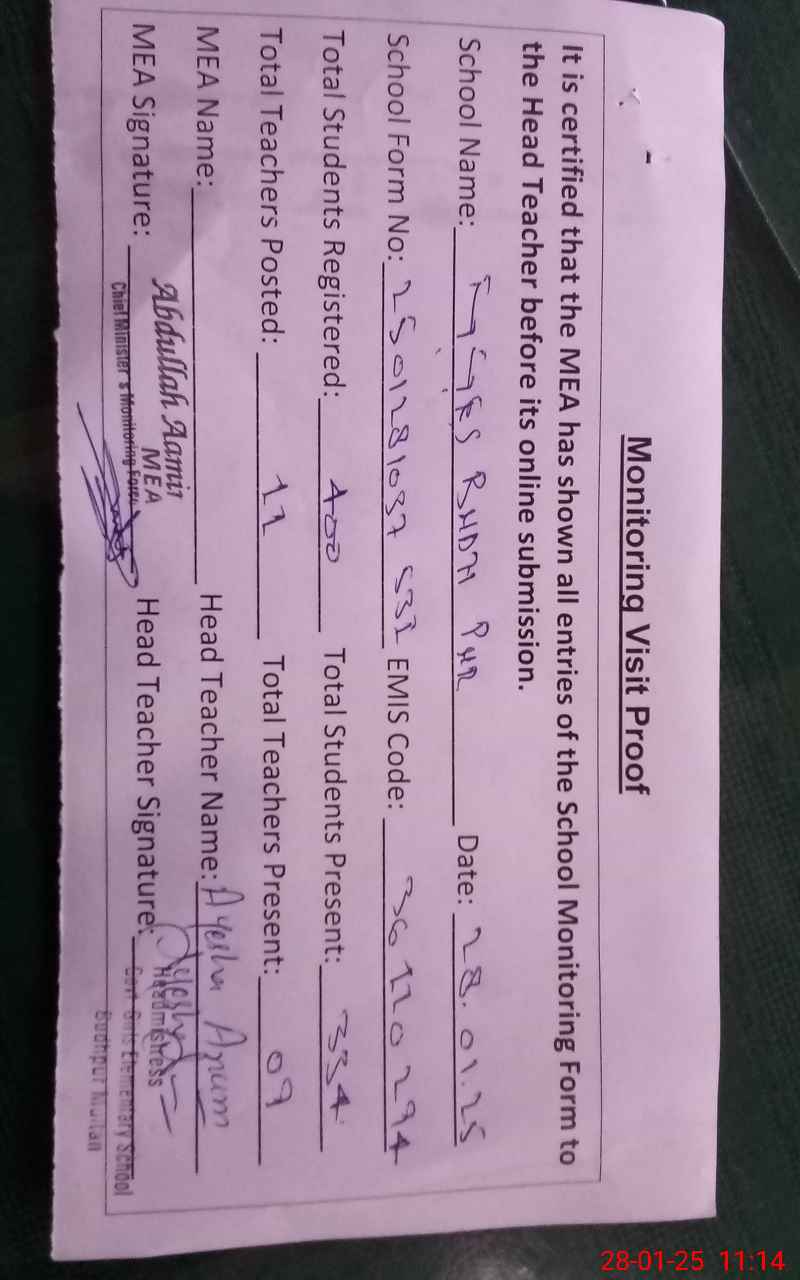 Monitoring Visit Proof
It is certified that the MEA has shown all entries of the School Monitoring Form to
the Head Teacher before its online submission.
School Name: Date: 28.01.25
School Form No: 2501281037 532 EMIS Code: 36120294
Total Students Registered: 400 Total Students Present: 334
Total Teachers Posted: 11 Total Teachers Present: 09
MEA Name: Head Teacher Name: Ayesha Anum
Abdullah Aamir
MEA
MEA Signature: Head Teacher Signature:
Chief Minister's Monitoring Force
Headmistress
Govt. Girls Elementary School
Budhpur Multan
28-01-25 11:14